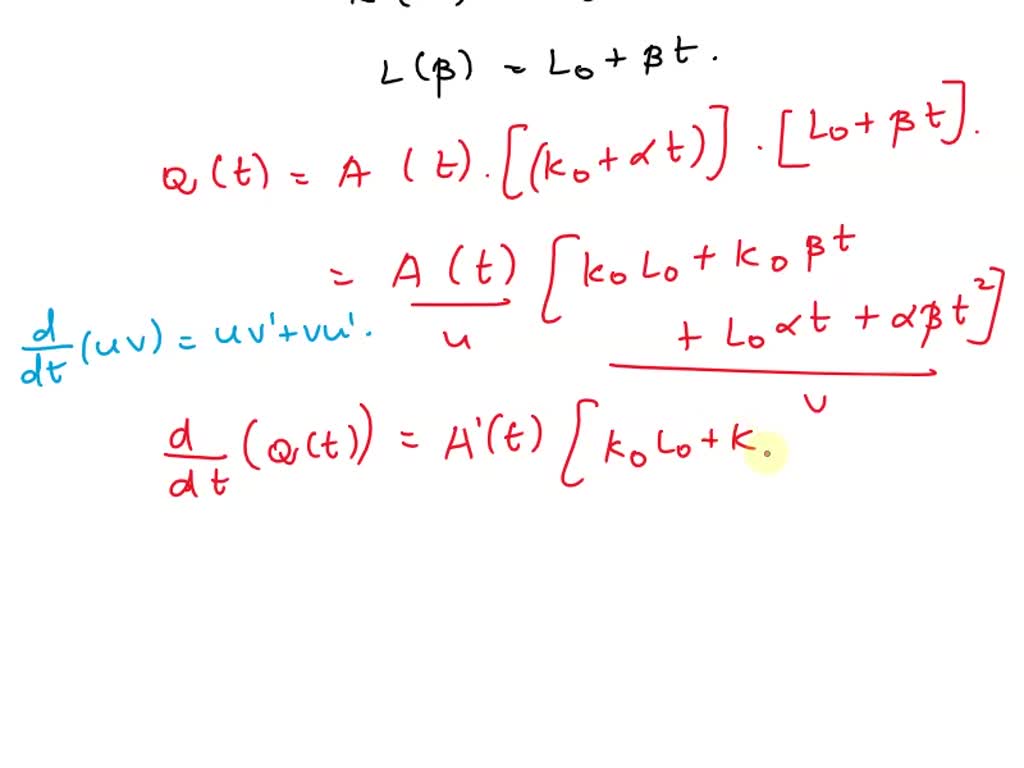 L(β) = L₀ + βt.
Q(t) = A (t).[(k₀+αt)].[L₀+βt].
= A(t) [k₀L₀ + k₀βt
+ L₀αt + αβt²]
u
v
d/dt (uv) = uv'+vu'.
d/dt (Q(t)) = A'(t) [k₀L₀ + k